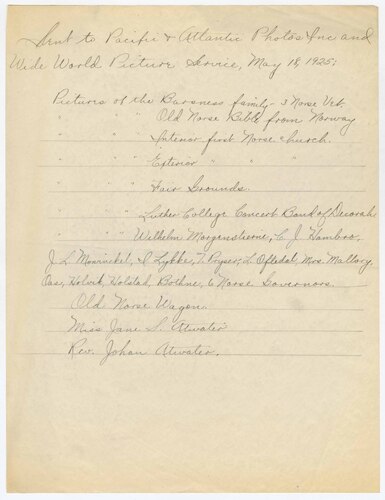 Sent to Pacific & Atlantic Photos Inc and
Wide World Picture Service, May 18, 1925:
Pictures of the Barsness family - 3 Norse Vet.
" " " Old Norse Bible from Norway
" " " Interior first Norse church.
" " " Exterior " "
" " " Fair Grounds.
" " " Luther College Concert Band of Decorah
" " " Wilhelm Morgenstierne, C. J. Hambro,
J. L. Lykke, T. Oftedal, Mrs. Mallory,
Oas, Holvik, Holstad, Bothne, 6 Norse Governors.
Old Norse Wagon.
Miss Jane S. Atwater
Rev. Johan Atwater.